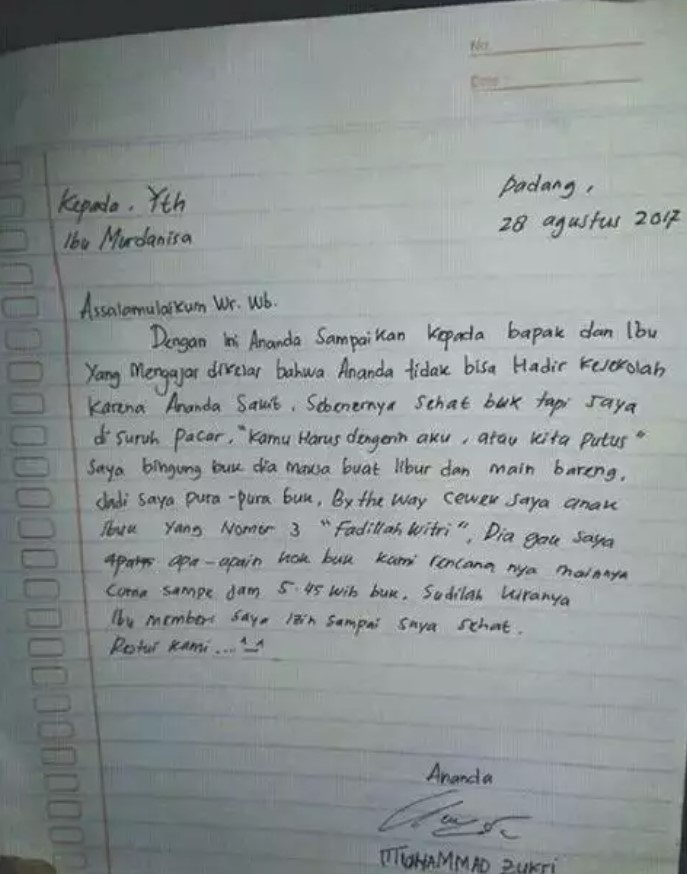 No
Date
Padang,
28 agustus 2017
Kepada. Yth
Ibu Murdanisa
Assalamulaikum Wr. Wb.
Dengan Ini Ananda Sampaikan Kepada bapak dan Ibu
Yang Mengajar dikelas bahwa Ananda tidak bisa Hadir Kesekolah
Karena Ananda Sakit. Sebenernya Sehat buk tapi saya
di suruh Pacar, "Kamu Harus dengerin aku, atau kita Putus"
Saya bingung buk dia maksa buat libur dan main bareng,
Jadi saya pura-pura buk, By the way cewek saya anak
Ibuk Yang Nomor 3 "Fadillah Witri", Dia gak saya
apa-apain kok buk kami rencana nya mainnya
Cuma sampe Jam 5.45 wib buk. Sudilah kiranya
Ibu memberi saya izin sampai saya sehat.
Restui Kami...^_^
Ananda
MUHAMMAD Zukri